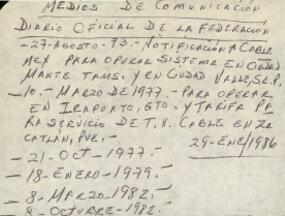 MEDIOS DE COMUNICACIÓN
DIARIO OFICIAL DE LA FEDERACIÓN
-27-AGOSTO-73.- NOTIFICACIÓN A CABLE
MEX PARA OPERAR SISTEMA EN CIUDAD
MANTE TAMS. Y EN CIUDAD VALLES, S.L.P.
-10.- MARZO DE 1977.- PARA OPERAR
EN IRAPUATO, GTO. Y TARIFA PA
RA SERVICIO DE T.V. CABLE EN ZA
CATLÁN, PUE.-
29-ENE/1976
-21-OCT-1977.-
-18-ENERO-1979.-
-8-MARZO-1982.-
-8-OCTUBRE-1982.-